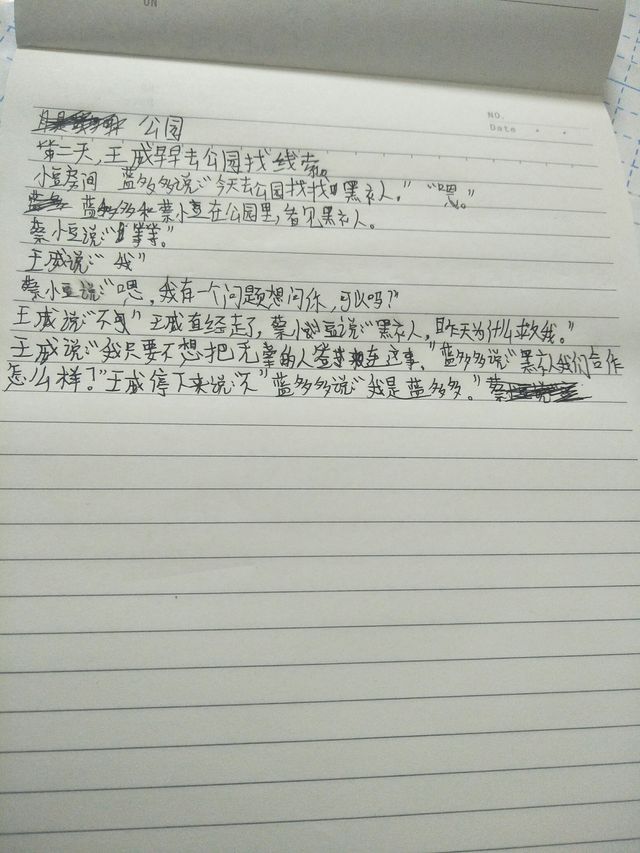 ON
NO.
Date
公园
第二天，王威早早去公园找线索。
小豆房间 蓝多多说：“今天去公园找找黑衣人。” “嗯。”
蓝多多和蔡小豆在公园里，看见黑衣人。
蔡小豆说：“等等。”
王威说：“我”
蔡小豆说：“嗯，我有一个问题想问你，可以吗？”
王威说：“不可” 王威直经走了，蔡小豆说：“黑衣人，昨天为什么救我。”
王威说：“我只要不想把无辜的人牵扯在这事。”蓝多多说：“黑衣人我们合作
怎么样？”王威停下来说：“”蓝多多说：“我是蓝多多。”蔡